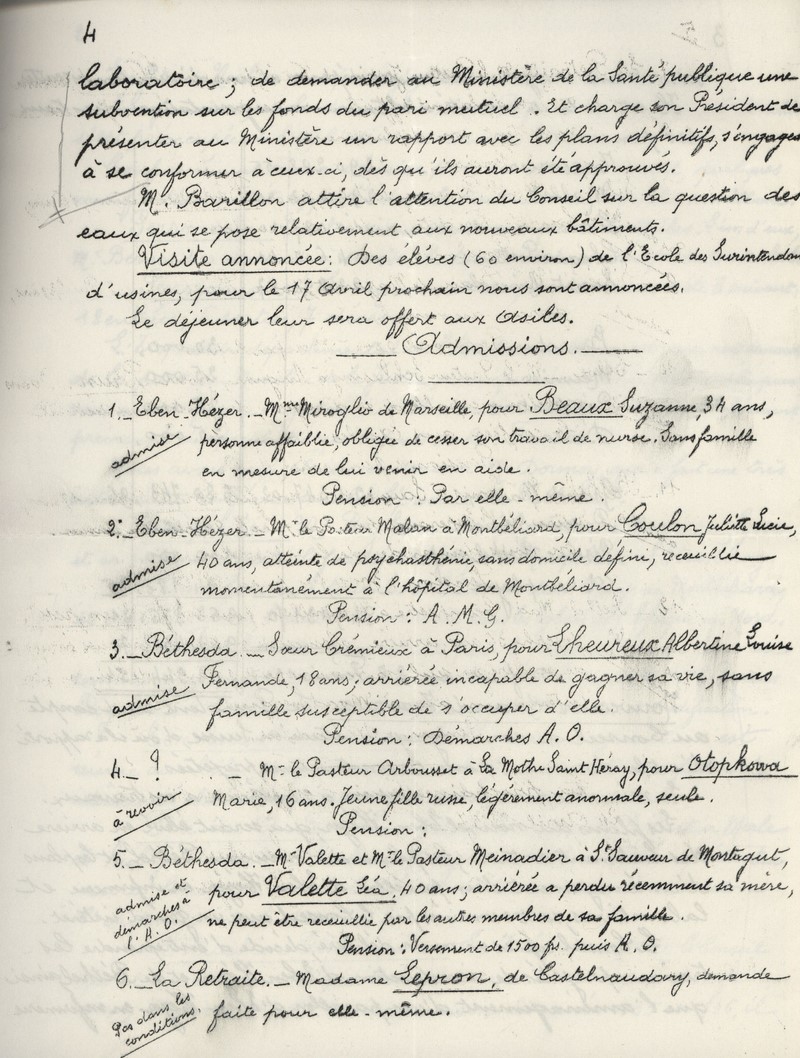 4
laboratoire ; de demander au Ministère de la Santé publique une
subvention sur les fonds du pari mutuel. Et charge son Président de
présenter au Ministère un rapport avec les plans définitifs, s'engage
à se conformer à ceux-ci, dès qu'ils auront été approuvés.
M. Barillon attire l'attention du Conseil sur la question des
eaux qui se pose relativement aux nouveaux bâtiments.
Visite annoncée: Des élèves (60 environ) de l'Ecole des Surintendan
d'usines, pour le 17 Avril prochain nous sont annoncées.
Le déjeuner leur sera offert aux Asiles.
Admissions.
1._ Eben-Hézer._ Mme Miroglio de Marseille, pour Beaux Suzanne, 34 ans,
admise
personne affaiblie, obligée de cesser son travail de nurse. Sans famille
en mesure de lui venir en aide.
Pension : Par elle-même.
2._ Eben-Hézer._ Mr le Pasteur Malan à Montbéliard, pour Coulon Juliette Lucie,
admise
40 ans, atteinte de psychasthénie, sans domicile défini, receuillie
momentanément à l'hôpital de Montbéliard.
Pension : A.M.G.
3._ Béthesda._ Sœur Crémieux à Paris, pour Lheureux Albertine Louise
admise
Fernande, 18 ans; arriérée incapable de gagner sa vie, sans
famille susceptible de s'occuper d'elle.
Pension : Démarches A.O.
4._ ? _ Mr le Pasteur Arbousset à La Mothe Saint Héray, pour Otopkowa
à revoir
Marie, 16 ans. Jeune fille russe, légèrement anormale, seule.
Pension :
5._ Béthesda._ Mr Valette et Mr le Pasteur Meinadier à St Sauveur de Montagut,
admise et
démarches à
l'A.O.
pour Valette Léa, 40 ans; arriérée a perdu récemment sa mère,
ne peut être receuillie par les autres membres de sa famille.
Pension : Versement de 1500 frs. puis A.O.
6._ La Retraite._ Madame Lepron, de Castelnaudary, demande
Pas dans les
conditions.
faite pour elle-même.